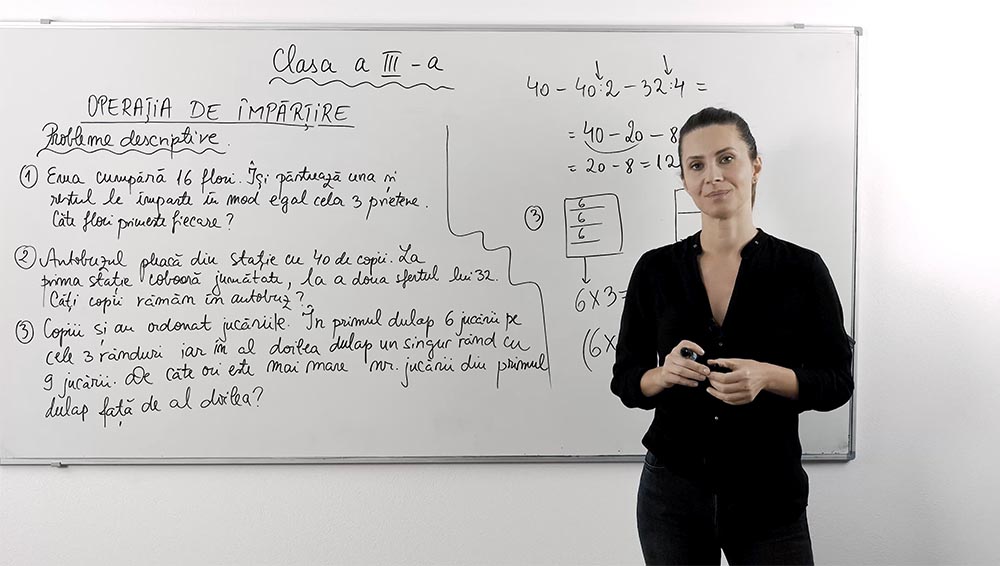 Clasa a III-a
OPERAȚIA DE ÎMPĂRȚIRE
Probleme descriptive.
① Ema cumpără 16 flori. Își păstrează una și
restul le împarte în mod egal celor 3 prietene.
Câte flori primește fiecare?
② Autobuzul pleacă din stație cu 40 de copii. La
prima stație coboară jumătate, la a doua sfertul lui 32.
Câți copii rămân în autobuz?
③ Copiii și-au ordonat jucăriile. În primul dulap 6 jucării pe
cele 3 rânduri iar în al doilea dulap un singur rând cu
9 jucării. De câte ori este mai mare nr. jucării din primul
dulap față de al doilea?
40 - 40:2 - 32:4 =
= 40 - 20 - 8
= 20 - 8 = 12
③
6
6
6
6x3=
(6x